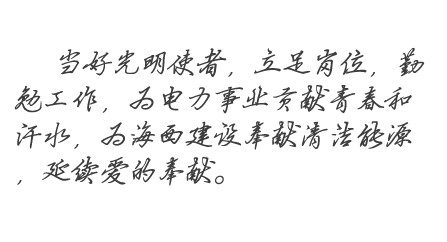 当好光明使者，立足岗位，勤
勉工作，为电力事业贡献青春和
汗水，为海西建设奉献清洁能源
，延续爱的奉献。